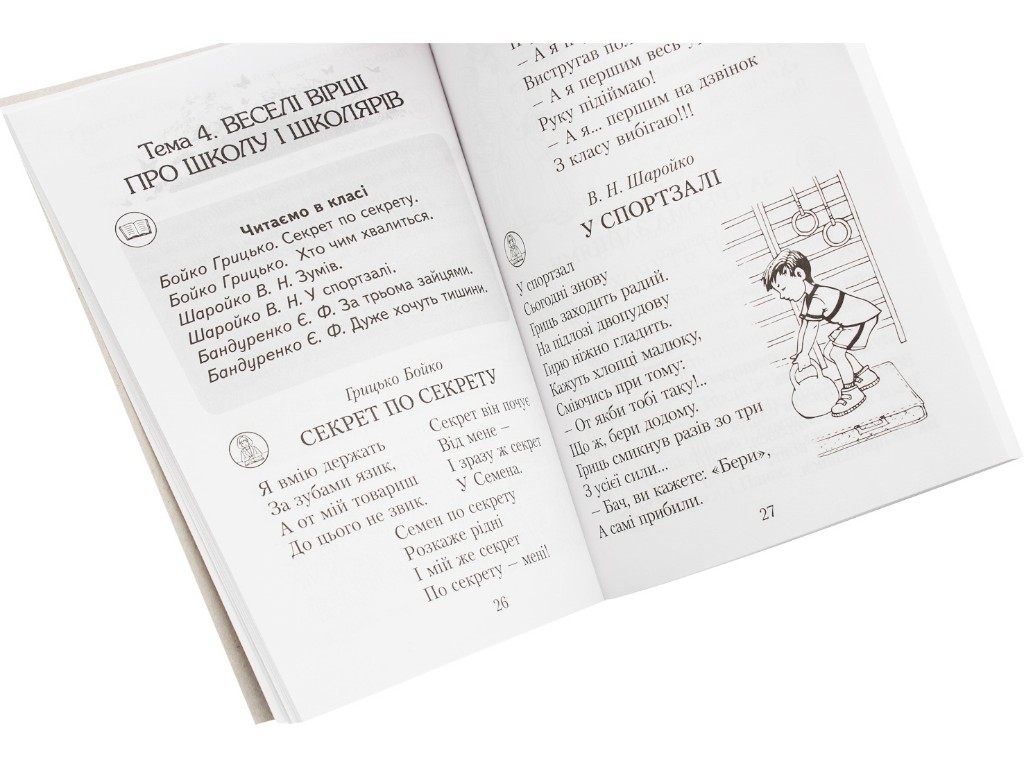 Тема 4. ВЕСЕЛІ ВІРШІ
ПРО ШКОЛУ І ШКОЛЯРІВ
Читаємо в класі
Бойко Грицько. Секрет по секрету.
Бойко Грицько. Хто чим хвалиться.
Шаройко В. Н. Зумів.
Шаройко В. Н. У спортзалі.
Бандуренко Є. Ф. За трьома зайцями.
Бандуренко Є. Ф. Дуже хочуть тишини.
Грицько Бойко
СЕКРЕТ ПО СЕКРЕТУ
Я вмію держать
За зубами язик,
А от мій товариш
До цього не звик.
Секрет він почує
Від мене –
І зразу ж секрет
У Семена.
Семен по секрету
Розкаже рідні
І мій же секрет
По секрету – мені!
26
– А я п
Вистругав пол
– А я першим весь у
Руку підіймаю!
– А я... першим на дзвінок
З класу вибігаю!!!
В. Н. Шаройко
У СПОРТЗАЛІ
У спортзал
Сьогодні знову
Гриць заходить радий.
На підлозі двопудову
Гирю ніжно гладить.
Кажуть хлопці малюку,
Сміючись при тому:
– От якби тобі таку!..
Що ж, бери додому.
Гриць смикнув разів зо три
З усієї сили...
– Бач, ви кажете: «Бери»,
А самі прибили.
27